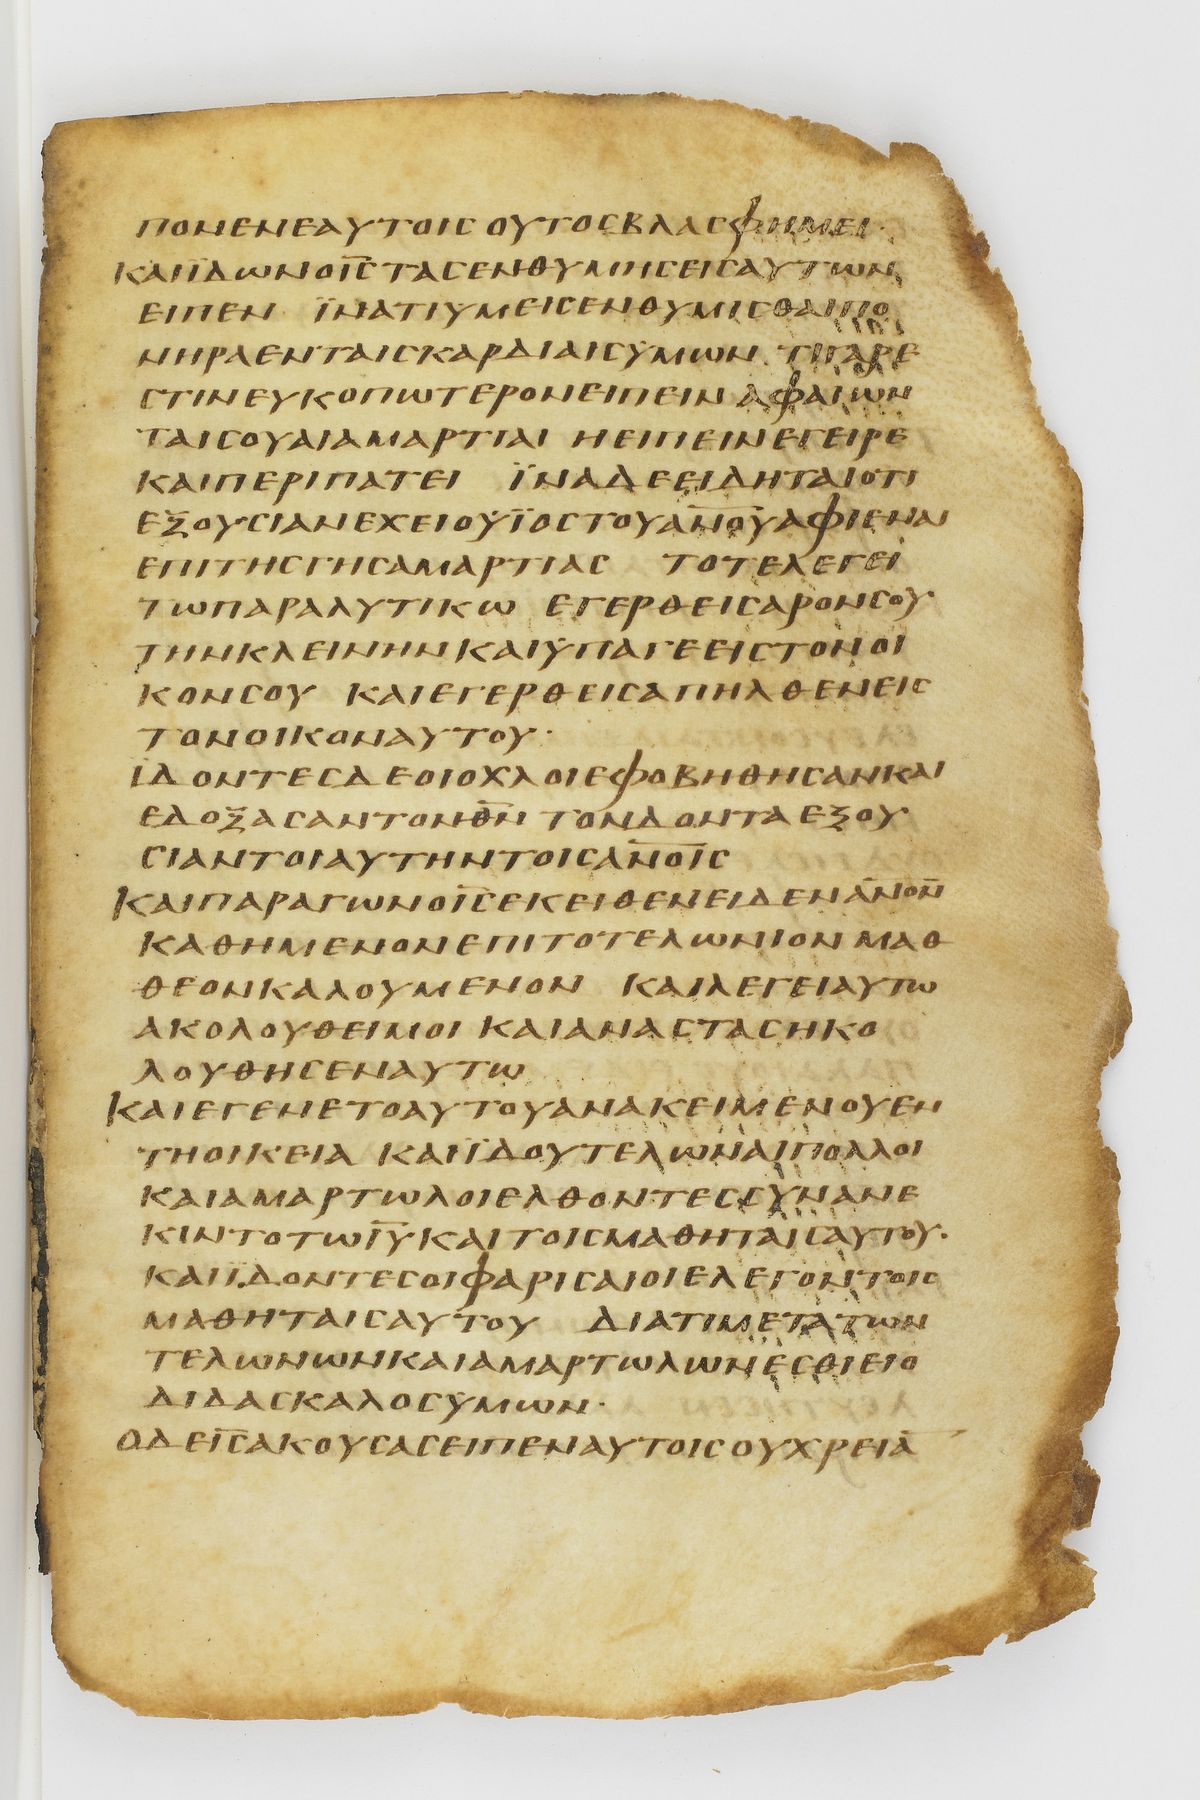 ΠΟΝΕΝΕΑΥΤΟΙC ΟΥΤΟCΒΛΑCΦΗΜΕΙ·
ΚΑΙΪΔΩΝΟΙ̅C̅ΤΑCΕΝΘΥΜΗCΕΙCΑΥΤΩΝ
ΕΙΠΕΝ ΪΝΑΤΙΥΜΕΙCΕΝΘΥΜΙCΘΑΙΠΟ
ΝΗΡΑΕΝΤΑΙCΚΑΡΔΙΑΙCΥΜΩΝ ΤΙΓΑΡΕ
CΤΙΝΕΥΚΟΠΩΤΕΡΟΝΕΙΠΕΙΝ ΑΦΑΙΩΝ
ΤΑΙCΟΥΑΙΑΜΑΡΤΙΑΙ ΗΕΙΠΕΙΝΕΓΕΙΡΕ
ΚΑΙΠΕΡΙΠΑΤΕΙ ΪΝΑΔΕΕΙΔΗΤΑΙΟΤΙ
ΕΞΟΥCΙΑΝΕΧΕΙΟΥΪΟCΤΟΥΑ̅Ν̅Ο̅Υ̅ΑΦΙΕΝΑΙ
ΕΠΙΤΗCΓΗCΑΜΑΡΤΙΑC ΤΟΤΕΛΕΓΕΙ
ΤΩΠΑΡΑΛΥΤΙΚΩ ΕΓΕΡΘΕΙCΑΡΟΝCΟΥ
ΤΗΝΚΛΕΙΝΗΝΚΑΙΥΠΑΓΕΕΙCΤΟΝΟΙ
ΚΟΝCΟΥ ΚΑΙΕΓΕΡΘΕΙCΑΠΗΛΘΕΝΕΙC
ΤΟΝΟΙΚΟΝΑΥΤΟΥ·
ΪΔΟΝΤΕCΔΕΟΙΟΧΛΟΙΕΦΟΒΗΘΗCΑΝΚΑΙ
ΕΔΟΞΑCΑΝΤΟΝΘ̅Ν̅ ΤΟΝΔΟΝΤΑΕΞΟΥ
CΙΑΝΤΟΙΑΥΤΗΝΤΟΙCΑ̅Ν̅Ο̅Ι̅C̅
ΚΑΙΠΑΡΑΓΩΝΟΙ̅C̅ΕΚΕΙΘΕΝΕΙΔΕΝΑ̅Ν̅Ο̅Ν̅
ΚΑΘΗΜΕΝΟΝΕΠΙΤΟΤΕΛΩΝΙΟΝ ΜΑΘ
ΘΕΟΝΚΑΛΟΥΜΕΝΟΝ ΚΑΙΛΕΓΕΙΑΥΤΩ
ΑΚΟΛΟΥΘΕΙΜΟΙ ΚΑΙΑΝΑCΤΑCΗΚΟ
ΛΟΥΘΗCΕΝΑΥΤΩ
ΚΑΙΕΓΕΝΕΤΟΑΥΤΟΥΑΝΑΚΕΙΜΕΝΟΥΕΝ
ΤΗΟΙΚΕΙΑ ΚΑΙΪΔΟΥΤΕΛΩΝΑΙΠΟΛΛΟΙ
ΚΑΙΑΜΑΡΤΩΛΟΙΕΛΘΟΝΤΕCCΥΝΑΝΕ
ΚΙΝΤΟΤΩΙ̅Υ̅ΚΑΙΤΟΙCΜΑΘΗΤΑΙCΑΥΤΟΥ·
ΚΑΙΪΔΟΝΤΕCΟΙΦΑΡΙCΑΙΟΙΕΛΕΓΟΝΤΟΙC
ΜΑΘΗΤΑΙCΑΥΤΟΥ ΔΙΑΤΙΜΕΤΑΤΩΝ
ΤΕΛΩΝΩΝΚΑΙΑΜΑΡΤΩΛΩΝΕCΘΙΕΙΟ
ΔΙΔΑCΚΑΛΟCΥΜΩΝ·
ΟΔΕΙ̅C̅ΑΚΟΥCΑCΕΙΠΕΝΑΥΤΟΙCΟΥΧΡΕΙΑ̅